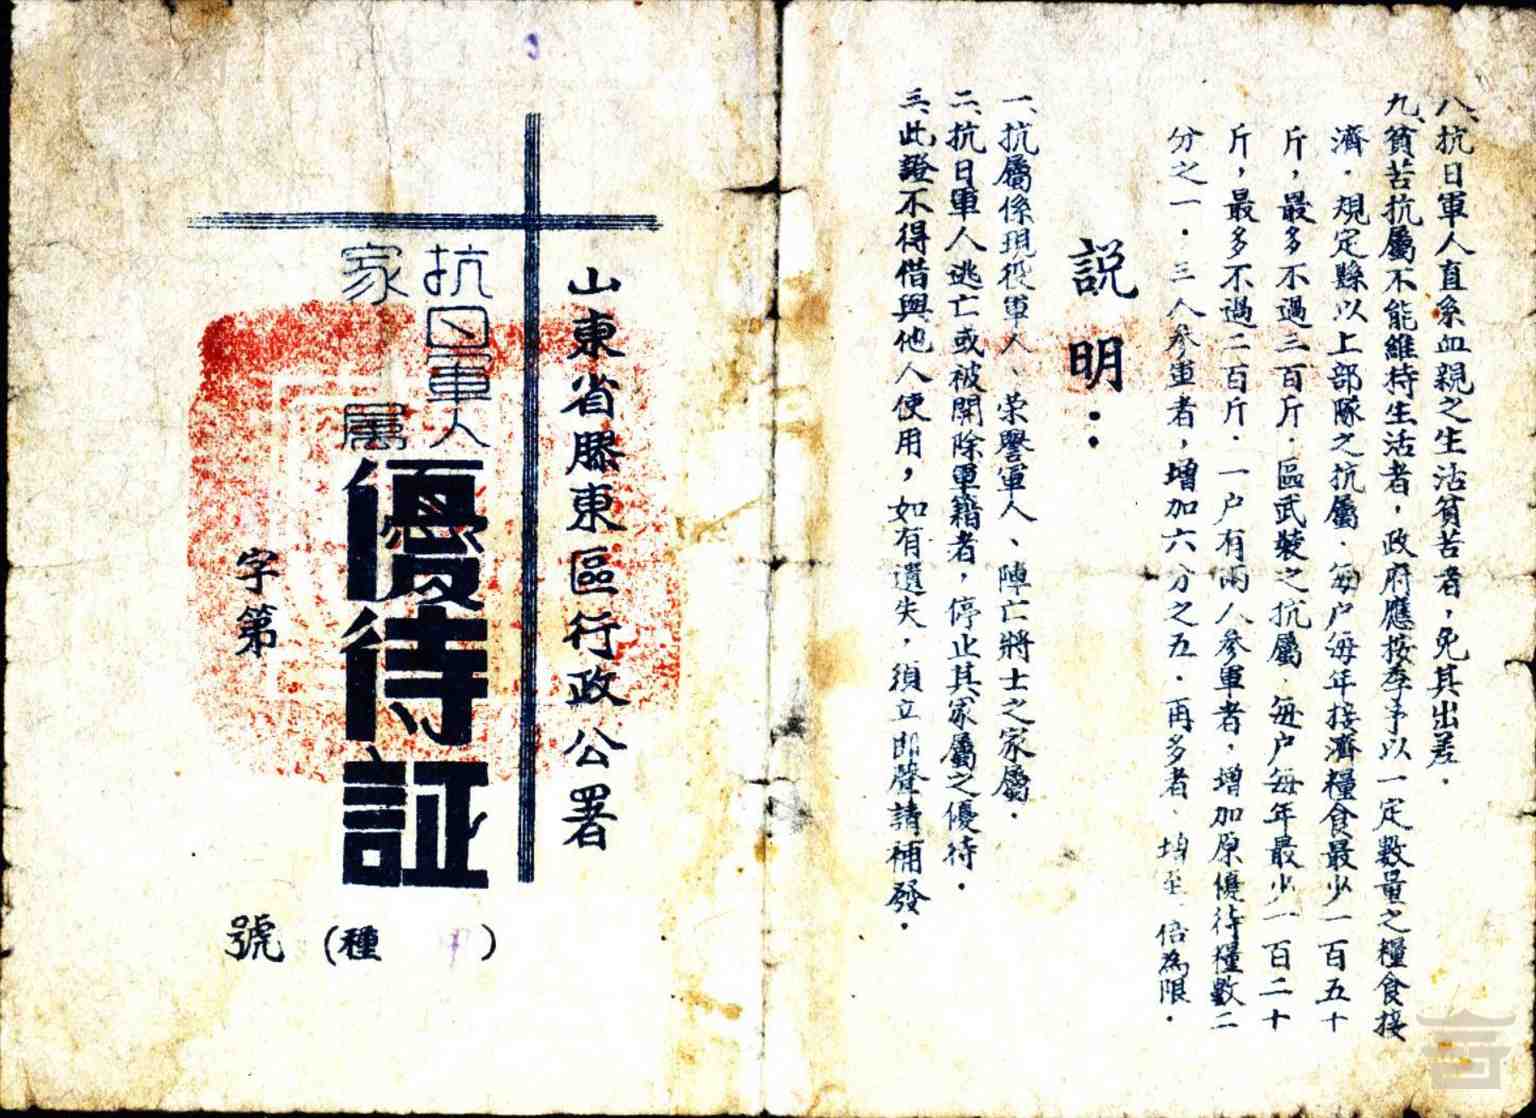 八、抗日軍人直系血親之生活貧苦者，免其出差．
九、貧苦抗屬不能維持生活者，政府應按季予以一定數量之糧食接
濟．規定縣以上部隊之抗屬．每户每年接濟糧食最少一百五十
斤，最多不過三百斤．區武裝之抗屬．每户每年最少一百二十
斤，最多不過二百斤．一户有兩人參軍者．增加原優待糧數二
分之一．三人參軍者，增加六分之五．再多者、增至 倍為限．
説明：
一、抗屬係現役軍人、荣譽軍人、陣亡將士之家屬．
二、抗日軍人逃亡或被開除軍籍者，停止其家屬之優待．
三、此證不得借與他人使用，如有遺失，須立即聲請補發．
山東省膠東區行政公署
抗日軍人
家屬
優待証
(種 甲)
字第 號